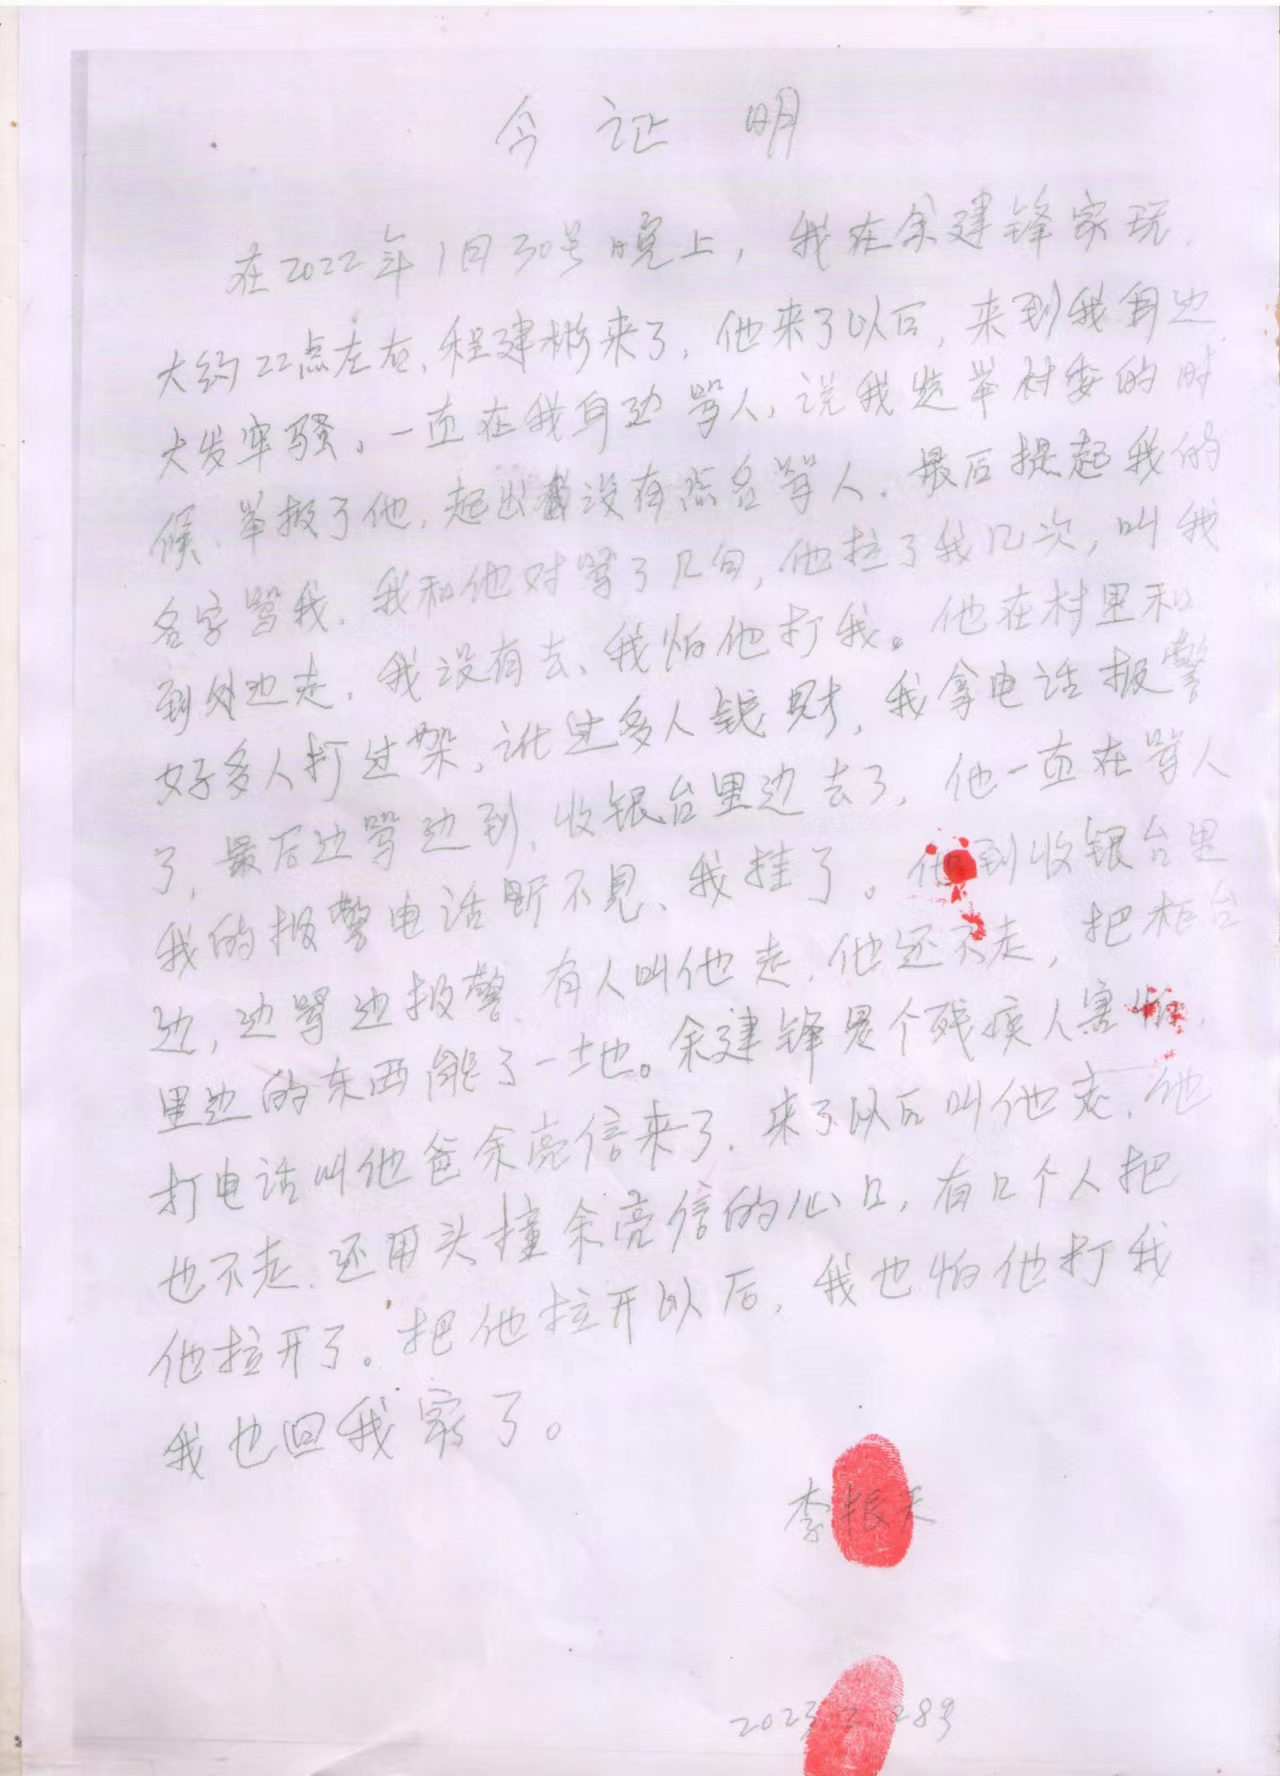 今证明
在2022年1月30号晚上，我在余建锋家玩，
大约22点左右，程建彬来了，他来了以后，来到我身边
大发牢骚。一直在我身边骂人，说我选举村委的时
候、举报了他，起出没有点名骂人。最后提起我的
名字骂我，我和他对骂了几句，他拉了我几次，叫我
到外边走，我没有去、我怕他打我。他在村里和
好多人打过架，讹过多人钱财，我拿电话报警
了，最后边骂边到，收银台里边去了，他一直在骂人
我的报警电话听不见、我挂了。他到收银台里
边，边骂边报警、有人叫他走，他还不走，把柜台
里边的东西能了一地。余建锋是个残疾人害怕，
打电话叫他爸余亮信来了，来了以后叫他走，他
也不走，还用头撞余亮信的心口，有几个人把
他拉开了。把他拉开以后，我也怕他打我
我也回我家了。
李振天
2023 2 28号